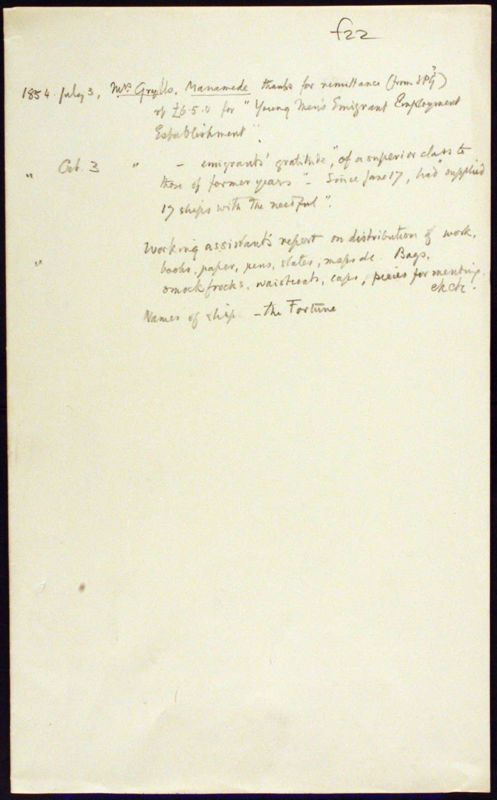 f22
1854 July 3, Mrs Grylls, Manamede thanks for remittance (from SPG?)
of £6.5.0 for "Young Men's Emigrant Employment
Establishment".
" Oct. 3 " - emigrants' gratitude, "of a superior class to
those of former years" - Since June 17, had "supplied
19 ships with the needful".
" Working assistant's report on distribution of work,
books, paper, pens, slates, maps &c. Bags,
smock frocks, waistcoats, caps, pieces for mending.
etc etc.
Names of ship - the Fortune